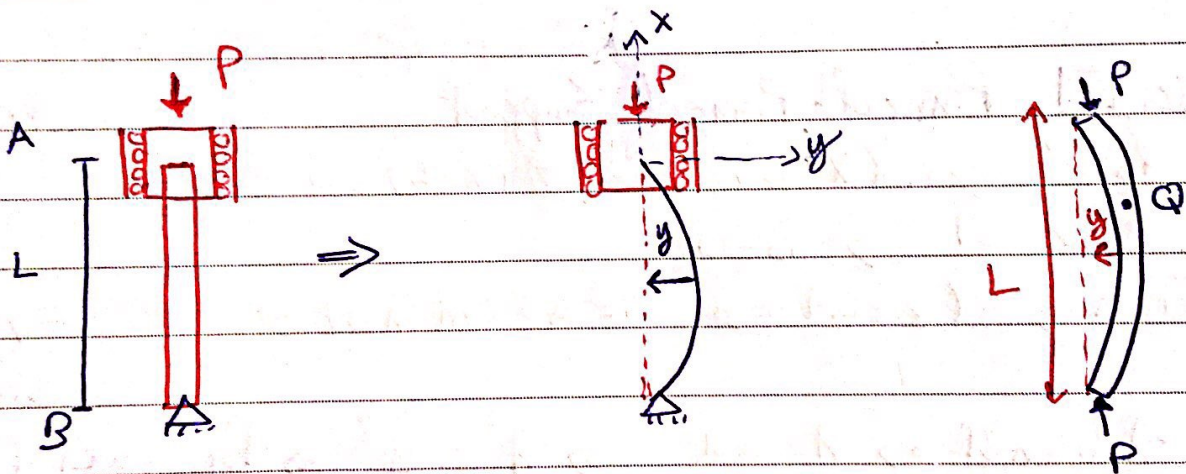 P
A
L
B
⇒
x
P
y
y
P
Q
y
L
P